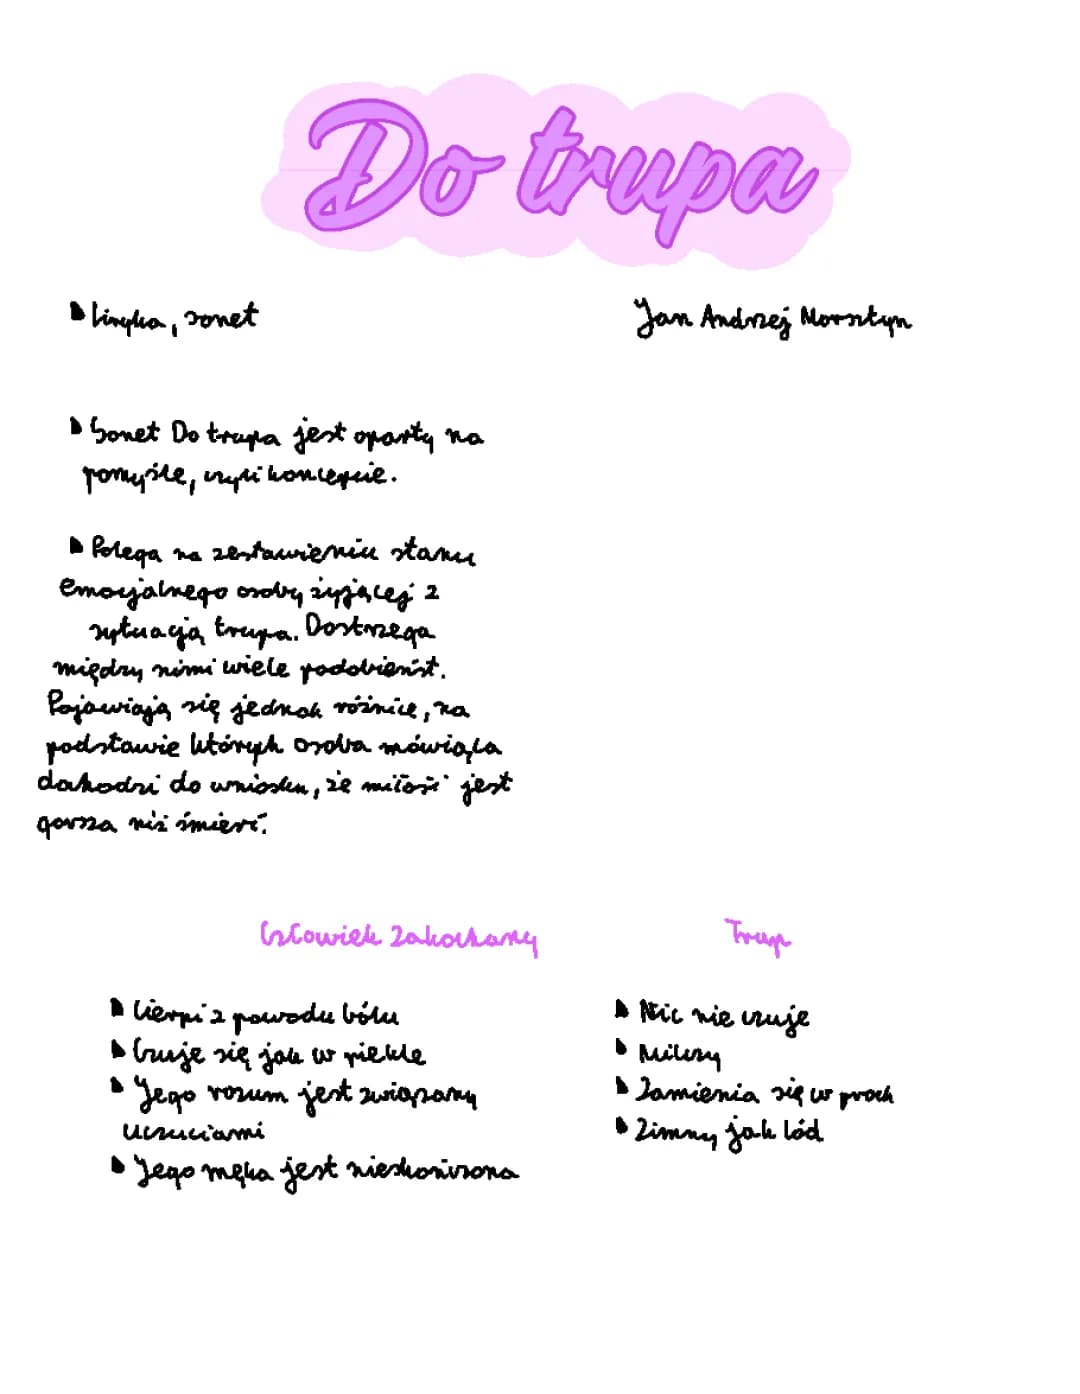 Do trupa
▪ liryka, sonet
Jan Andrzej Morsztyn
▪ Sonet Do trupa jest oparty na
pomyśle, czyli koncepcie.
▪ Polega na zestawieniu stanu
emocjalnego osoby żyjącej z
sytuacją trupa. Dostrzega
między nimi wiele podobieńst.
Pojawiają się jednak różnice, na
podstawie których osoba mówiąca
dochodzi do wniosku, że miłość jest
gorsza niż śmierć.
Człowiek zakochany
▪ Cierpi z powodu bólu
▪ Czuje się jak w piekle
▪ Jego rozum jest związany
uczuciami
▪ Jego męka jest nieskończona
Trup
▪ Nic nie czuje
▪ Milczy
▪ Zamienia się w proch
▪ Zimny jak lód